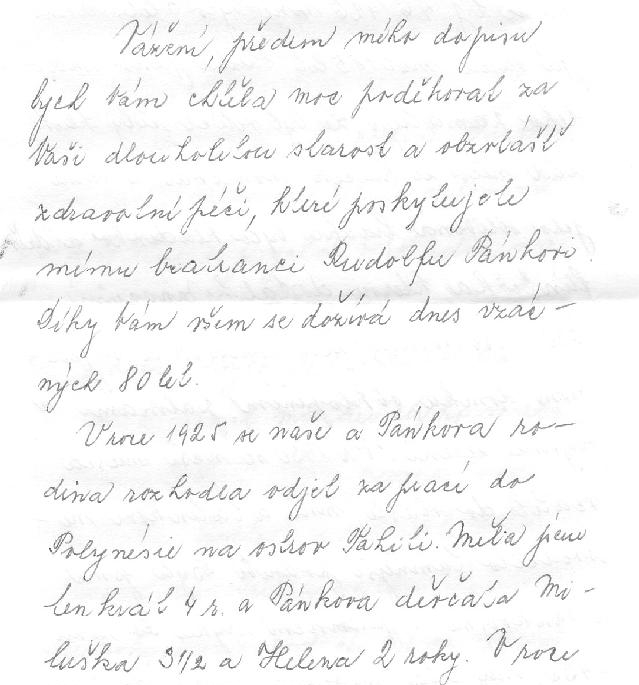 Vážení, předem mého dopisu
bych Vám chtěla moc poděkovat za
Vaši dlouholetou starost a obzvlášť
zdravotní péči, které poskytujete
mému bratranci Rudolfu Pánkovi.
Díky Vám všem se dožívá dnes vzác-
ných 80 let.
V roce 1925 se naše a Pánkova ro-
dina rozhodla odjet za prací do
Polynésie na ostrov Tahiti. Měla jsem
tenkrát 4 r. a Pánkova děvčata Mi-
luška 3 1/2 a Helena 2 roky. V roce